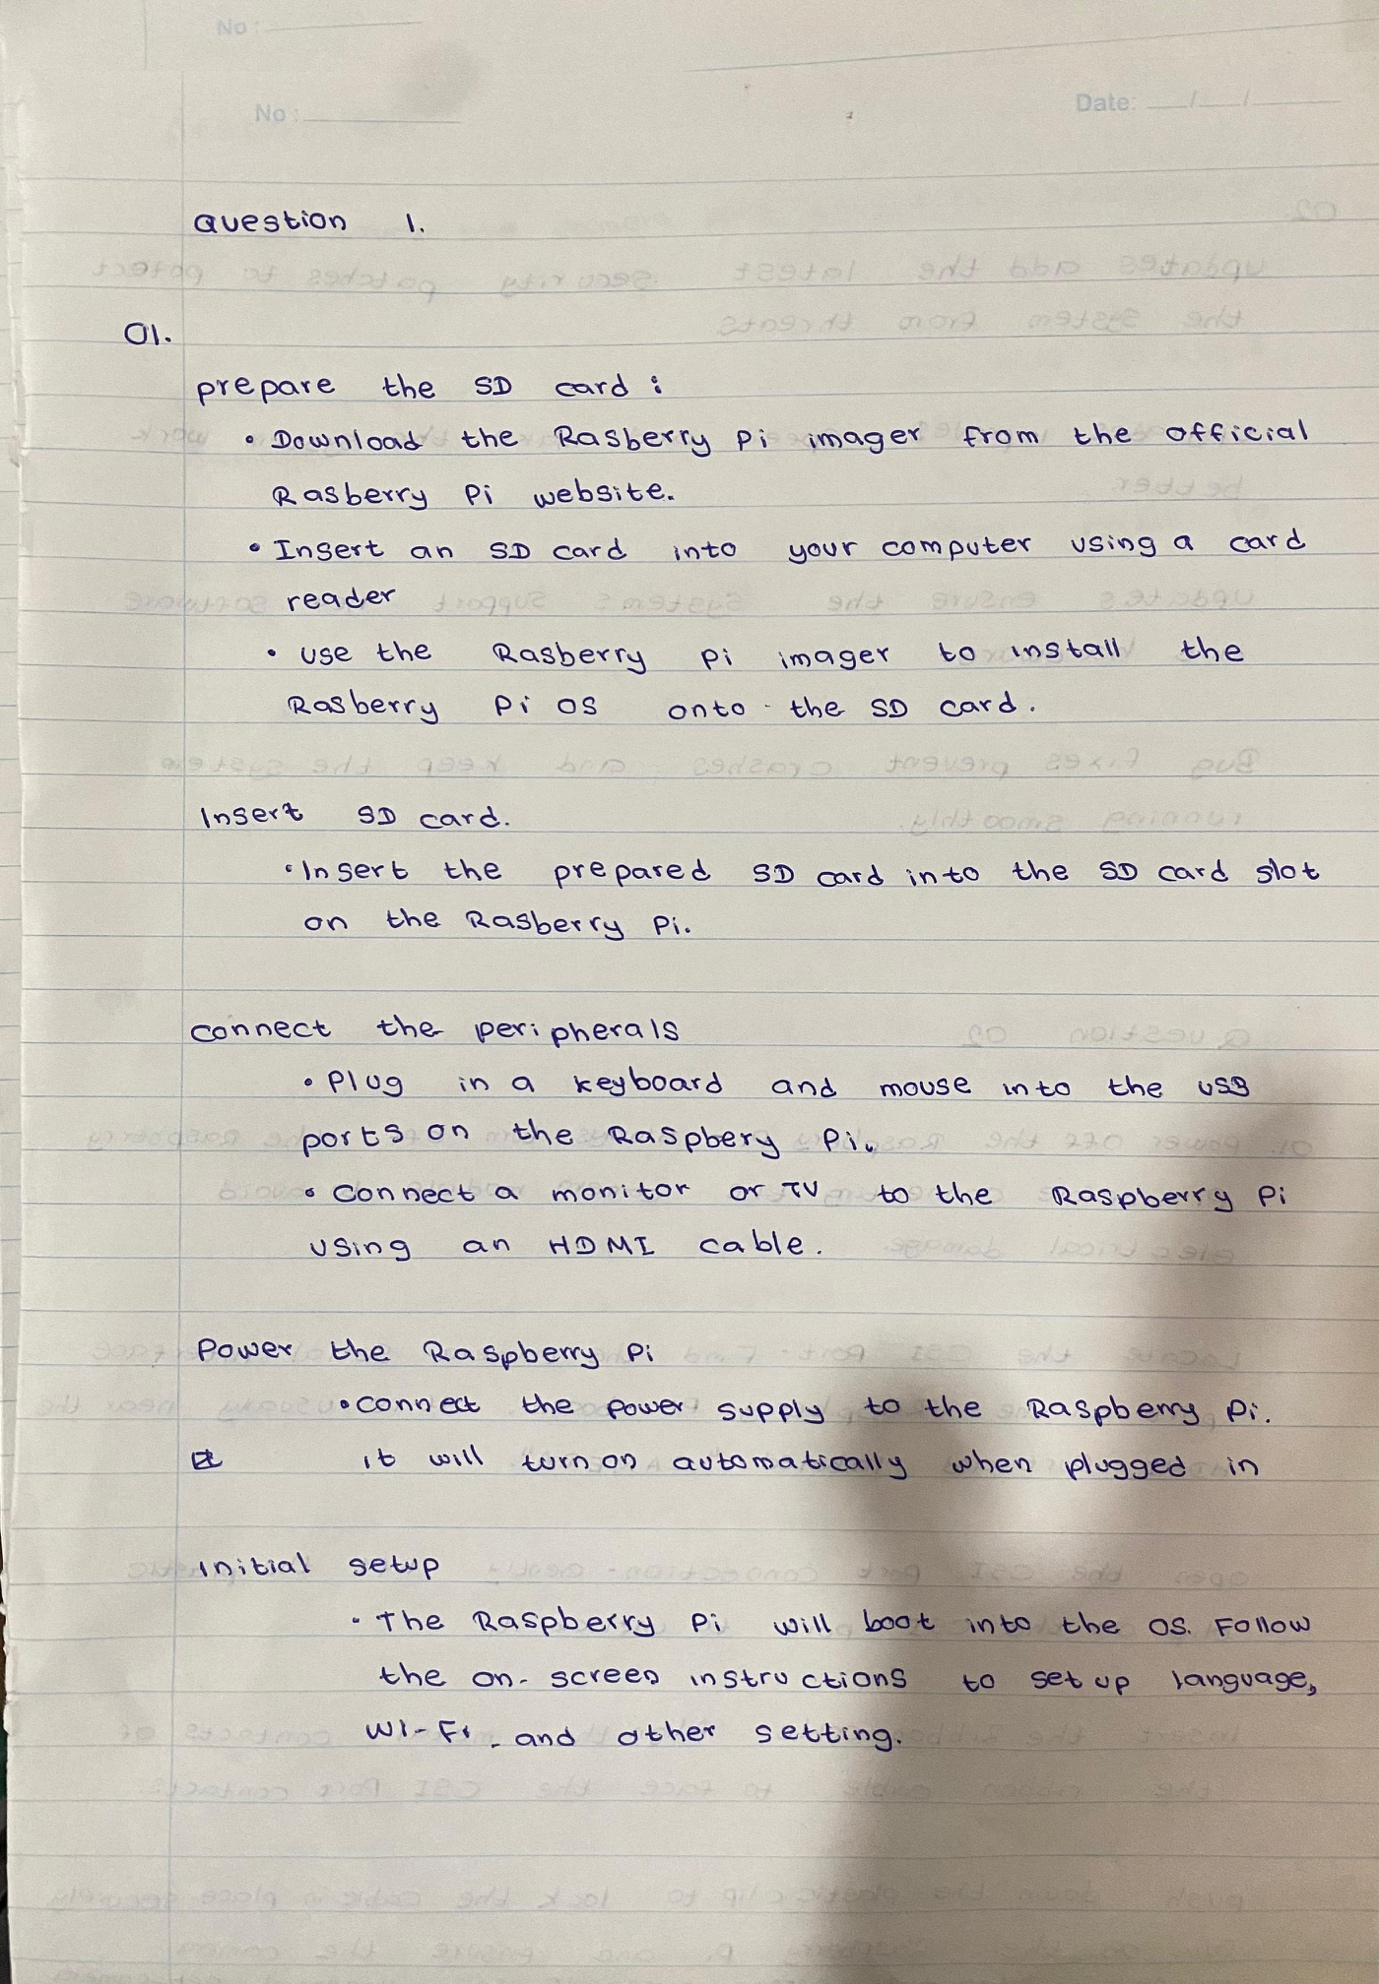 No:
No:
Date: __/__/____
Question 1.
01.
prepare the SD card:
• Download the Rasberry Pi imager from the official
Rasberry Pi website.
• Insert an SD card into your computer using a card
reader
• use the Rasberry Pi imager to install the
Rasberry Pi OS onto the SD card.
Insert SD card.
• Insert the prepared SD card into the SD card slot
on the Rasberry Pi.
connect the peripherals
• Plug in a keyboard and mouse into the USB
ports on the Raspbery Pi.
• connect a monitor or TV to the Raspberry Pi
using an HDMI cable.
Power the Raspberry Pi
• connect the power supply to the Raspberry Pi.
it will turn on automatically when plugged in
Initial setup
• The Raspberry Pi will boot into the OS. Follow
the on-screen instructions to set up language,
Wi-Fi, and other setting.